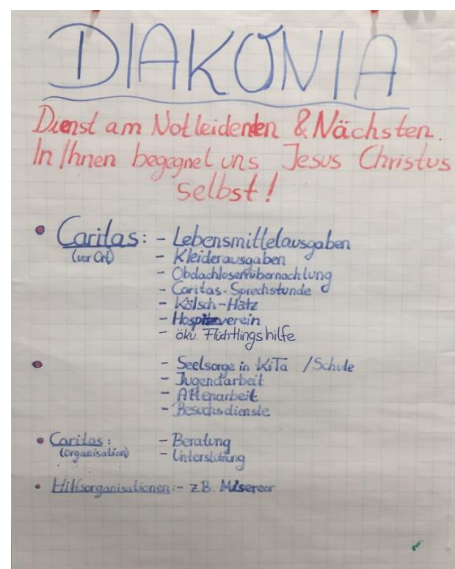 DIAKONIA
Dienst am Notleidenden & Nächsten.
In Ihnen begegnet uns Jesus Christus
selbst!
• Caritas: - Lebensmittelausgaben
(vor Ort) - Kleiderausgaben
- Obdachlosenübernachtung
- Caritas-Sprechstunde
- Kölsch-Hätz
- Hospizverein
- öku. Flüchtlingshilfe
• - Seelsorge in KiTa / Schule
- Jugendarbeit
- Altenarbeit
- Besuchsdienste
• Caritas: - Beratung
(Organisation) - Unterstützung
• Hilfsorganisationen: - z.B. Misereor